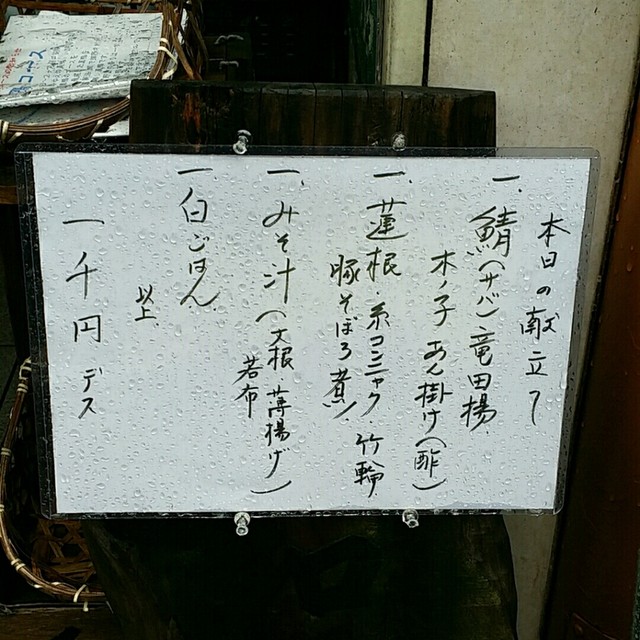 本日の献立て
一.鯖(サバ)竜田揚
木ノ子あん掛け(酢)
一.蓮根.糸コンニャク.竹輪
豚そぼろ煮
一.みそ汁(大根.薄揚げ)
若布
一白ごはん
以上
一千円デス